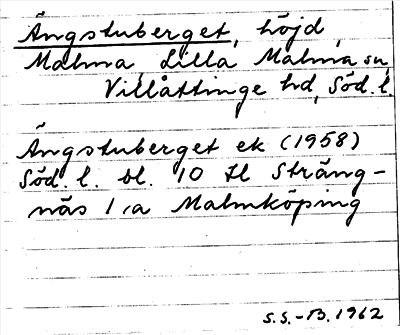 Ängstuberget, höjd,
Malma, Lilla Malma sn,
Villåttinge hd, Söd. l.
Ängstuberget ek (1958)
Söd. l. bl. 10 H Sträng-
näs 1:a Malmköping
S.S.-B. 1962